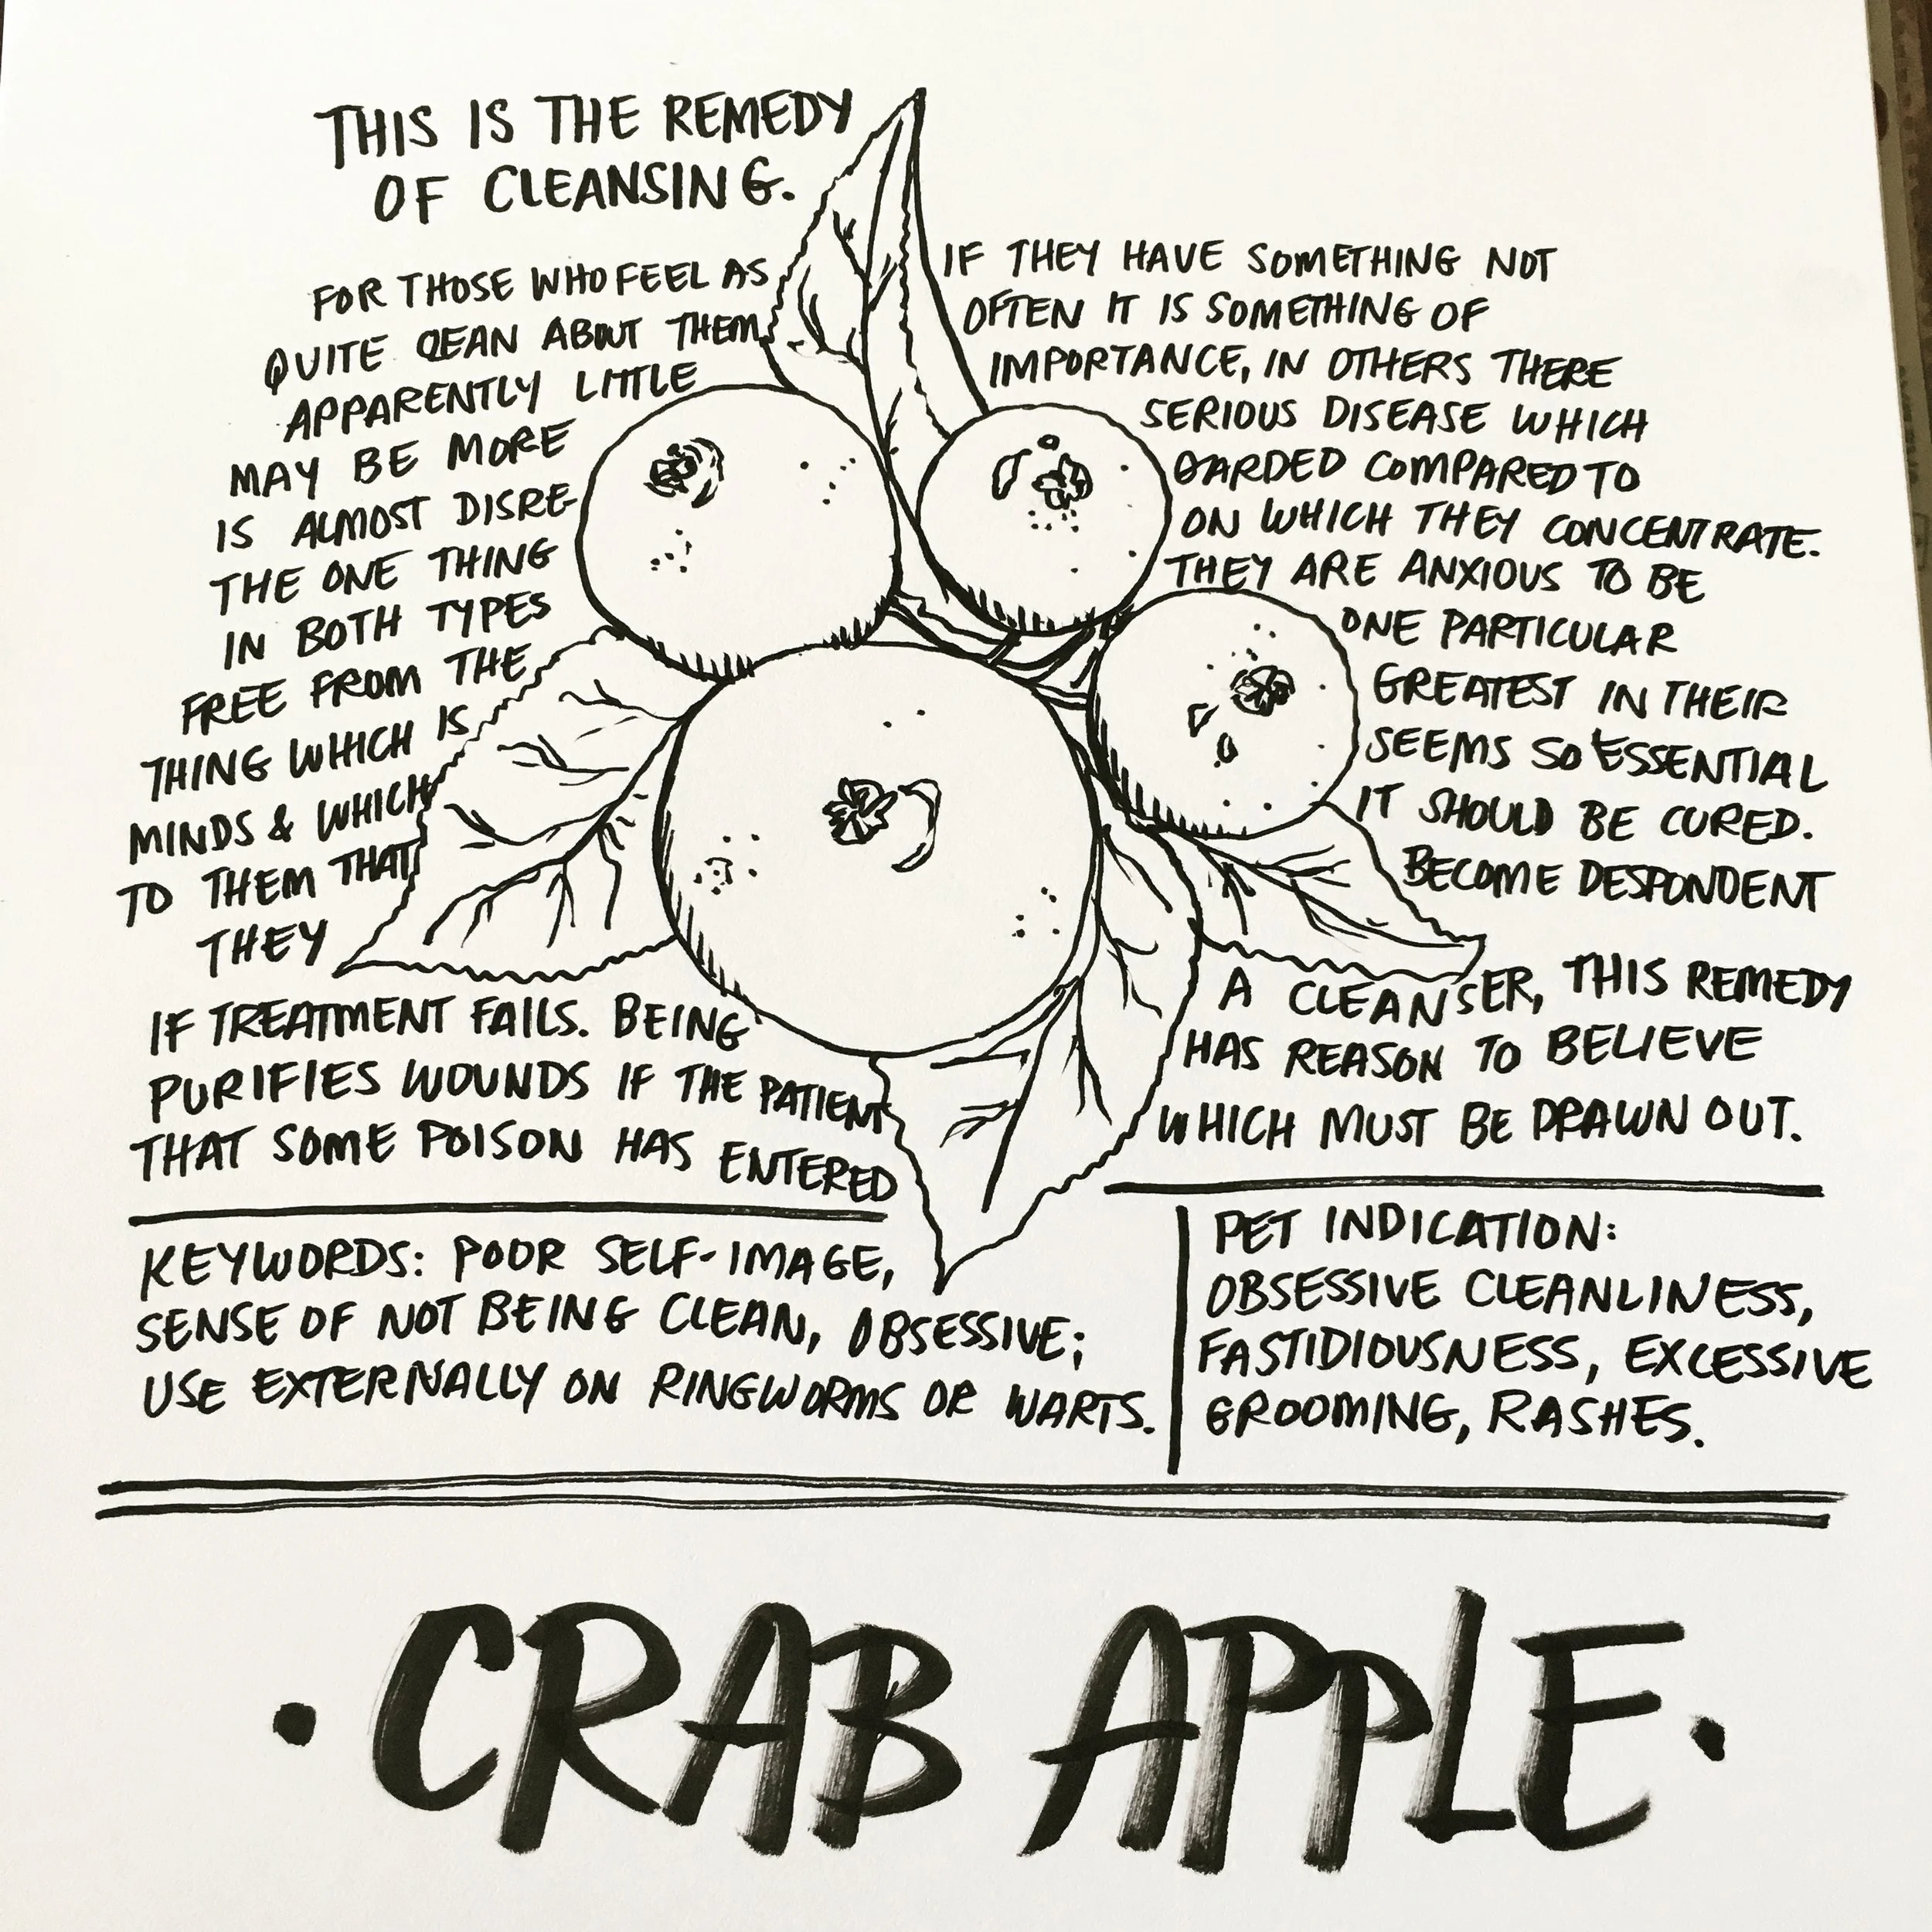 THIS IS THE REMEDY
OF CLEANSING.
FOR THOSE WHO FEEL AS IF THEY HAVE SOMETHING NOT
QUITE CLEAN ABOUT THEM OFTEN IT IS SOMETHING OF
APPARENTLY LITTLE IMPORTANCE, IN OTHERS THERE
MAY BE MORE SERIOUS DISEASE WHICH
IS ALMOST DISRE- GARDED COMPARED TO
THE ONE THING ON WHICH THEY CONCENTRATE.
IN BOTH TYPES THEY ARE ANXIOUS TO BE
FREE FROM THE ONE PARTICULAR
THING WHICH IS GREATEST IN THEIR
MINDS & WHICH SEEMS SO ESSENTIAL
TO THEM THAT IT SHOULD BE CURED.
THEY BECOME DESPONDENT
IF TREATMENT FAILS. BEING A CLEANSER, THIS REMEDY
PURIFIES WOUNDS IF THE PATIENT HAS REASON TO BELIEVE
THAT SOME POISON HAS ENTERED WHICH MUST BE DRAWN OUT.
KEYWORDS: POOR SELF-IMAGE,
SENSE OF NOT BEING CLEAN, OBSESSIVE;
USE EXTERNALLY ON RINGWORMS OR WARTS.
PET INDICATION:
OBSESSIVE CLEANLINESS,
FASTIDIOUSNESS, EXCESSIVE
GROOMING, RASHES.
• CRAB APPLE •